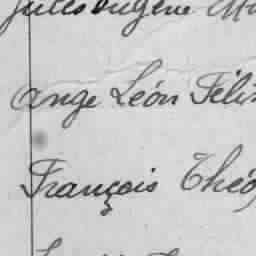 Jules Eugène
Ange Léon Féli
François Théo